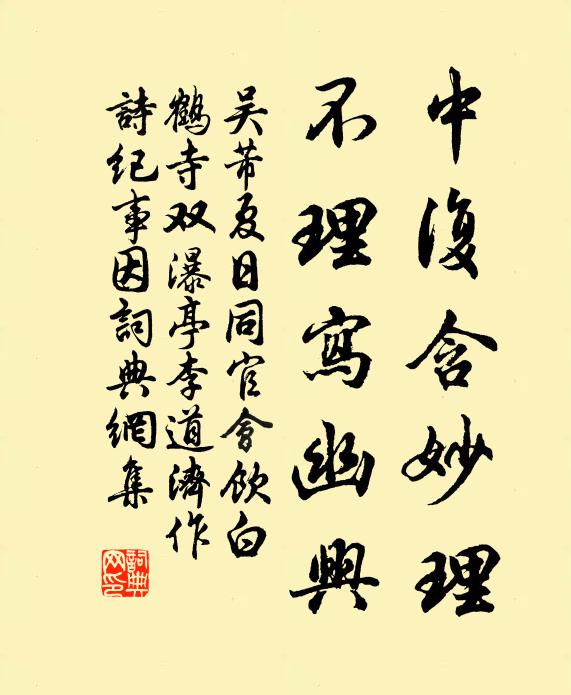 中復含妙理
不理寫幽興
吴芾夏日同官會飲白
鶴寺双瀑亭李道濟作
詩纪事因詞典網集
詞典
网印